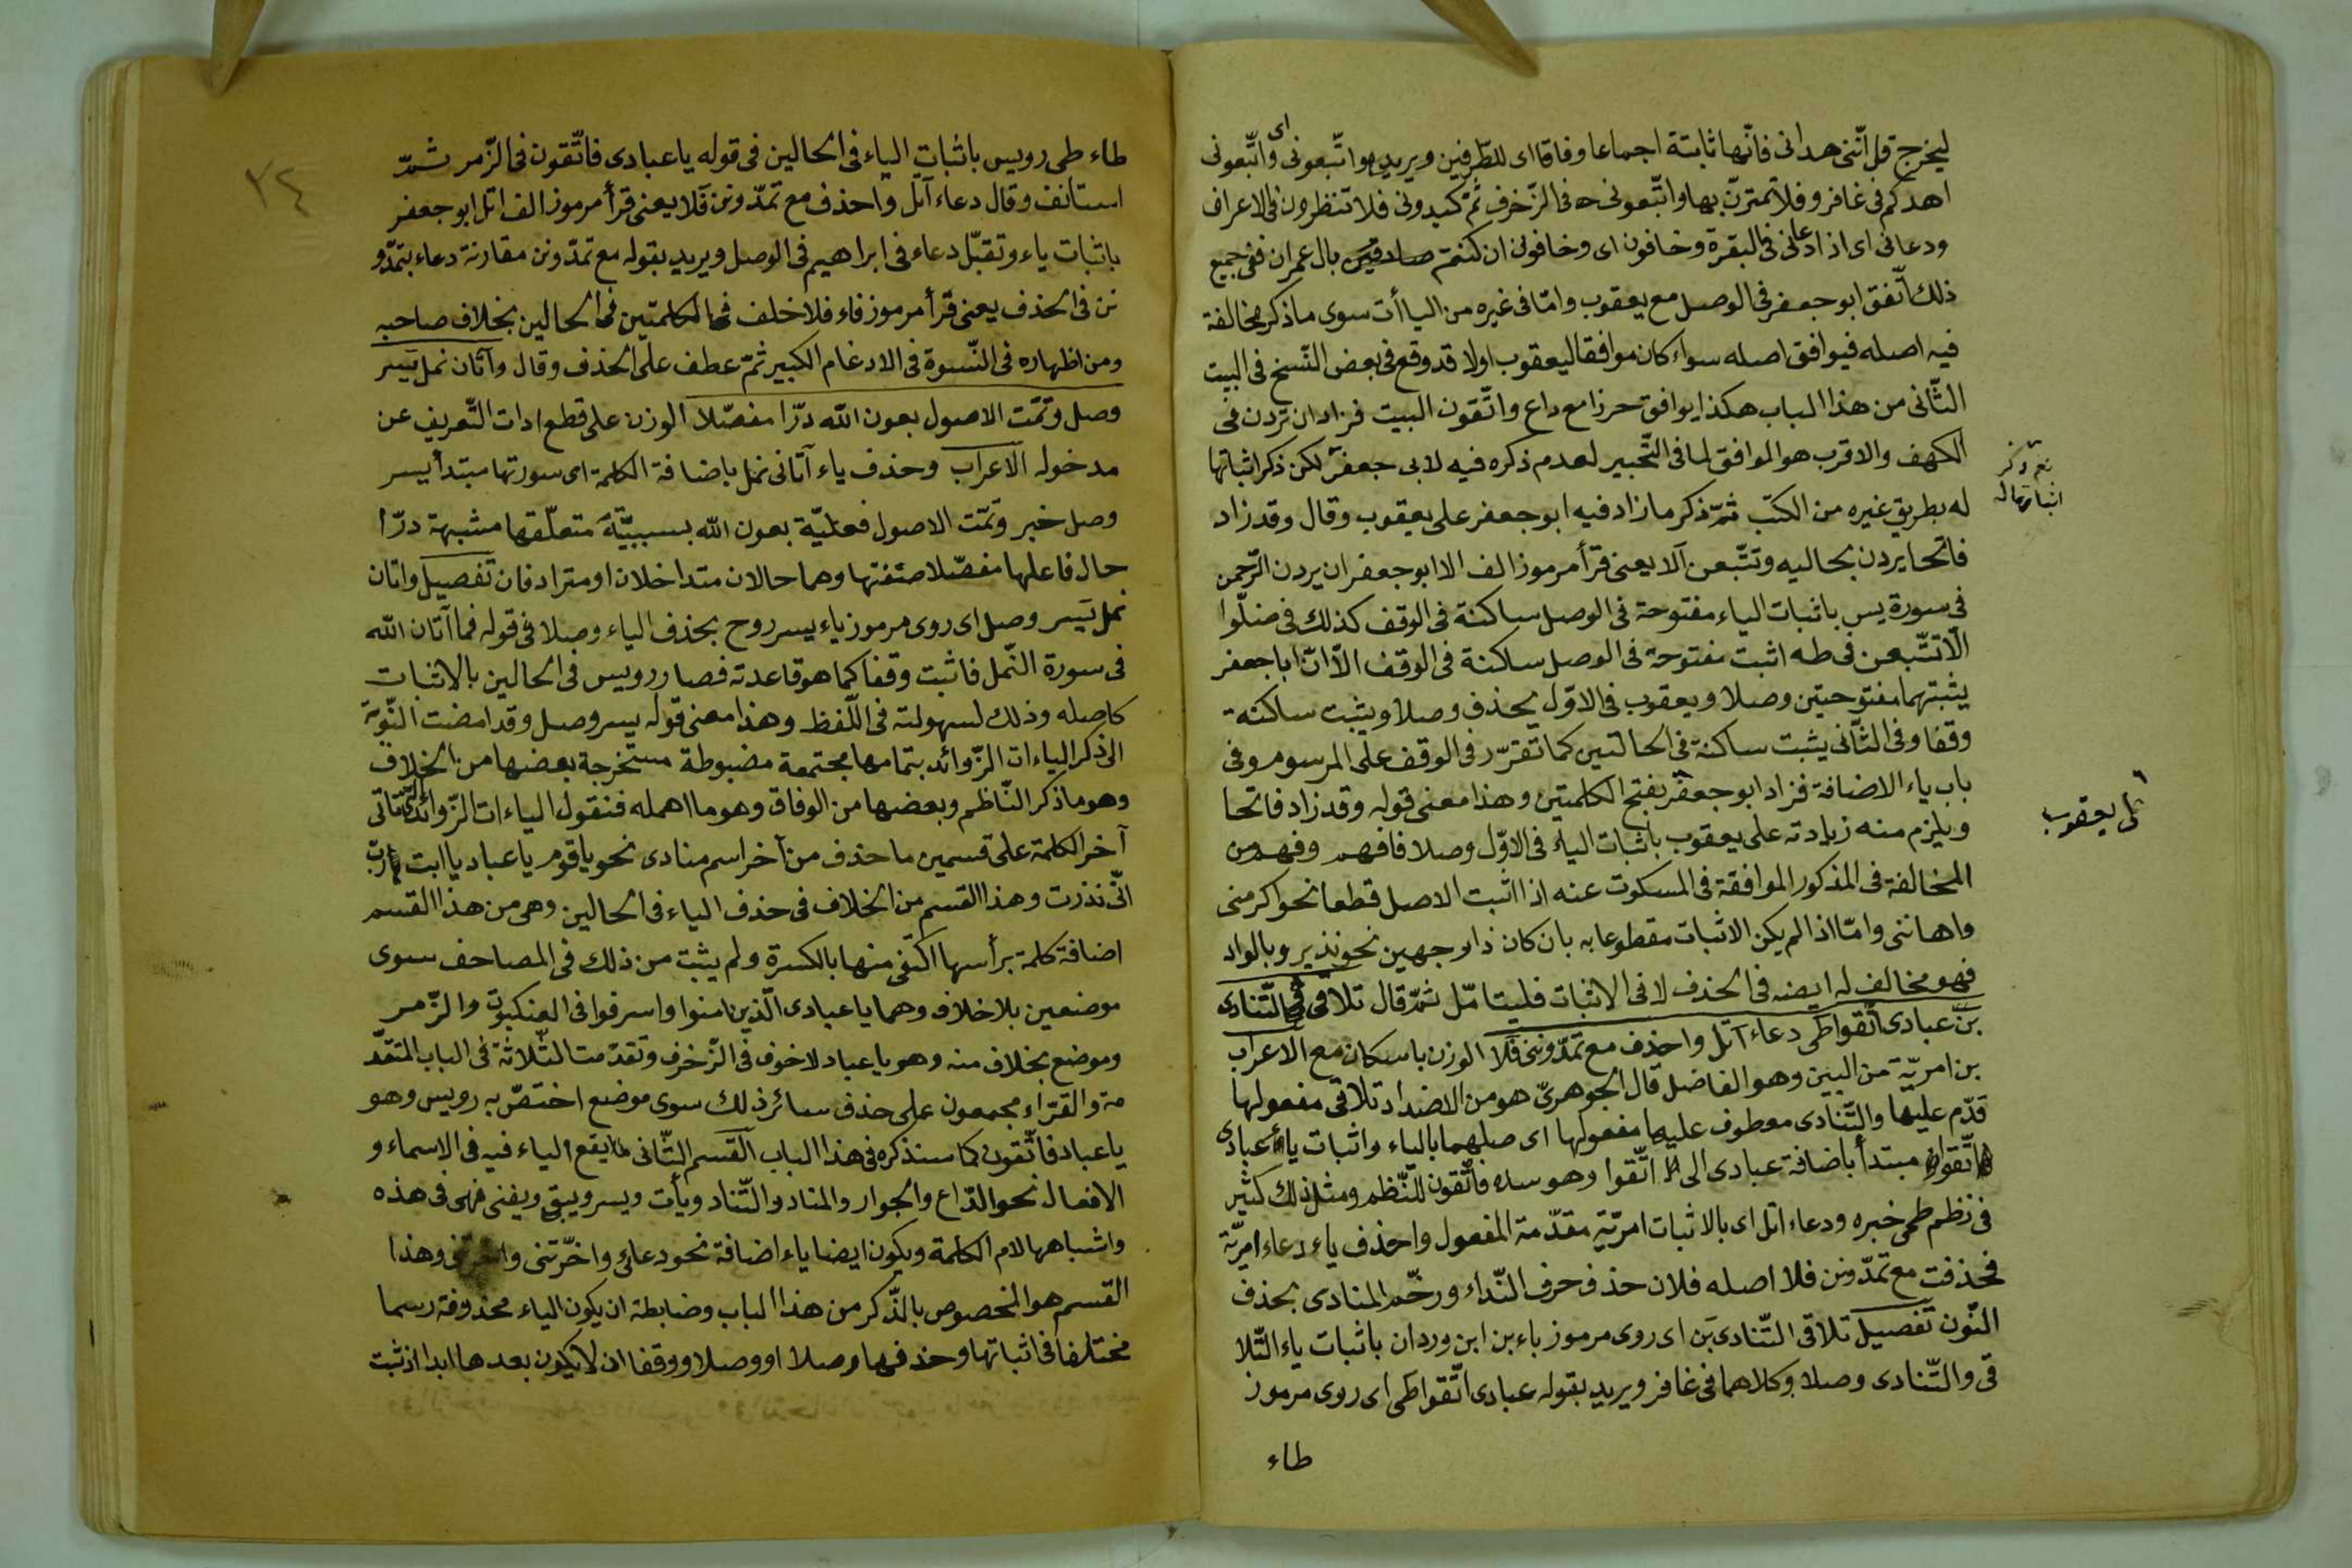 ليخرج قل انّنى هدانى فانّها ثابتة اجماعا وفاقا اى للطّرفين ويريد بواتّبعونى اى واتّبعونى
اهدكم فى غافر و فلا تمترنّ بها واتّبعونى ه فى الزّخرف ثمّ كيدونى فلا تنظرون فى الاعراف
ودعانى اى اذا دعانى فى البقرة وخافون اى وخافون ان كنتم بال عمران ففى جميع
ذلك اتّفق ابو جعفر فى الوصل مع يعقوب وامّا فى غيره من الياأت سوى ما ذكر مخالفة
فيه اصله فيوافق اصله سواء كان موافقا ليعقوب اولا قد وقع فى بعض النّسخ فى البيت
الثّانى من هذا الباب هكذا يوافق حرزا مع داع واتّقون البيت فزاد ان تردن فى
الكهف والاقرب هو الموافق لما فى التّحبير لعدم ذكره فيه لابى جعفر لكن ذكر اثباتها
له بطريق غيره من الكتب ثمّ ذكر ما زاد فيه ابو جعفر على يعقوب وقال وقد زاد
فاتحا يردن بحاليه وتتّبعن آلا يعنى قرأ مرموز الف الا ابو جعفر ان يردن الرّحمن
فى سورة يس باثبات الياء مفتوحة فى الوصل ساكنة فى الوقف كذلك فى ضلّوا
الّا تتّبعن فى طه اثبت مفتوحة فى الوصل ساكنة فى الوقف الّا انّ ابا جعفر
يثبتهما مفتوحتين وصلا ويعقوب فى الاوّل يحذف وصلا ويثبت ساكنة
وقفا وفى الثّانى يثبت ساكنة فى الحالتين كما تقرّر فى الوقف على المرسوم وفى
باب ياء الاضافة فزاد ابو جعفر بفتح الكلمتين وهذا معنى قوله وقد زاد فاتحا
ويلزم منه زيادته على يعقوب باثبات الياء فى الاوّل وصلا فافهم وفهم من
المخالفة فى المذكور الموافقة فى المسكوت عنه اذا اثبت الاصل قطعا نحو اكرمنى
واهاننى وامّا اذا لم يكن الاثبات مقطوعا به بان كان ذا وجهين نحو نذير وبالواد
فهو مخالف له ايضه فى الحذف لا فى الاثبات فليتامّل ثمّ قال تلاقى والتّنادى
بن عبادى اتّقوا طمى دعاء اتل واحذف مع تمدّوننى فلا الوزن باسكان مع الاعراب
بن امريّة من البين وهو الفاضل قال الجوهرىّ هو من الاضداد تلاقى مفعولها
قدّم عليها والتّنادى معطوف عليها مفعولها اى صلهما بالياء واثبات ياء عبادى
اتّقوا مبتدأ باضافة عبادى الى اتّقوا وهو ساده فاتّقون للنّظم ومثل ذلك كثير
فى نظم طمى خبره ودعاء اتل اى بالاثبات امريّة مقدّمة المفعول واحذف ياء دعاء امريّة
فحذفت مع تمدّونن فلا اصله فلان حذف حرف النّداء ورخّم المنادى بحذف
النّون تفصيل تلاقى التّنادى بن اى روى مرموز باء بن ابن وردان باثبات ياء التّلا
قى والتّنادى وصلا وكلاهما فى غافر ويريد بقوله عبادى اتّقوا طمى اى روى مرموز
طاء
نعم ذكر
اثباتها له
على يعقوب
٢٤
طاء طمى رويس باثبات الياء فى الحالين فى قوله يا عبادى فاتّقون فى الزّمر ثمّ
استانف وقال دعاء آتل واحذف مع تمدّونن فلا يعنى قرأ مرموز الف اتل ابو جعفر
باثبات ياء وتقبّل دعاء فى ابراهيم فى الوصل ويريد بقوله مع تمدّونن مقارنة دعاء بتمدّو
نن فى الحذف يعنى قرأ مرموز فاء فلا خلف فى الكلمتين فى الحالين بخلاف صاحبه
ومن اظهاره فى النّسوة فى الادغام الكبير ثمّ عطف على الحذف وقال وآتان نمل يسر
وصل وتمّت الاصول بعون الله درّا مفصّلا الوزن على قطع ادات التّعريف عن
مدخوله الاعراب وحذف ياء آتانى نمل باضافة الكلمة اى سورتها مبتدأ يسر
وصل خبر وتمّت الاصول فعليّة بعون الله بسببيّة متعلّقها مشبهة درّا
حال فاعلها مفصّلا صفتها وهما حالان متداخلان او مترادفان تفصيل واتان
نمل يسر وصل اى روى مرموز ياء يسر روح بحذف الياء وصلا فى قوله فما آتان الله
فى سورة النّمل فاثبت وقفا كما هو قاعدته فصار رويس فى الحالين بالاثبات
كاصله وذلك لسهولته فى اللّفظ وهذا معنى قوله يسر وصل وقد امضت النّوبة
الى ذكر الياءات الزّوائد بتمامها مجتمعة مضبوطة مستخرجة بعضها من الخلاف
وهو ما ذكر النّاظم وبعضها من الوفاق وهو ما اهمله فنقول الياءات الزّوائد الّتى تاتى
آخر الكلمة على قسمين ما حذف من آخر اسم منادى نحو يا قوم يا عباد يا ابت يا ربّ
انّى نذرت وهذا القسم من الخلاف فى حذف الياء فى الحالين وهى من هذا القسم
اضافة كلمة برأسها اكتفى منها بالكسرة ولم يثبت من ذلك فى المصاحف سوى
موضعين بلا خلاف وهما يا عبادى الّذين امنوا واسرفوا فى العنكبوت والزّمر
وموضع بخلاف منه وهو يا عباد لا خوف فى الزّخرف وتقدّمت الثّلاثة فى الباب المتقدّ
مة والقرّاء مجمعون على حذف سائر ذلك سوى موضع اختصّ به رويس وهو
يا عباد فاتّقون كما سنذكره فى هذا الباب القسم الثّانى ما يقع الياء فيه فى الاسماء و
الافعال نحو الدّاع والجوار والمناد والتّناد ويأت ويسر ويبق ويفنى فهى فى هذه
واشباهها لام الكلمة ويكون ايضا ياء اضافة نحو دعائى واخّرتنى وهذا
القسم هو المخصوص بالذّكر من هذا الباب وضابطه ان يكون الياء محذوفة رسما
مختلفا فى اثباتها وحذفها وصلا او وصلا ووقفا ان لا يكون بعدها ابدا اذ ثبت